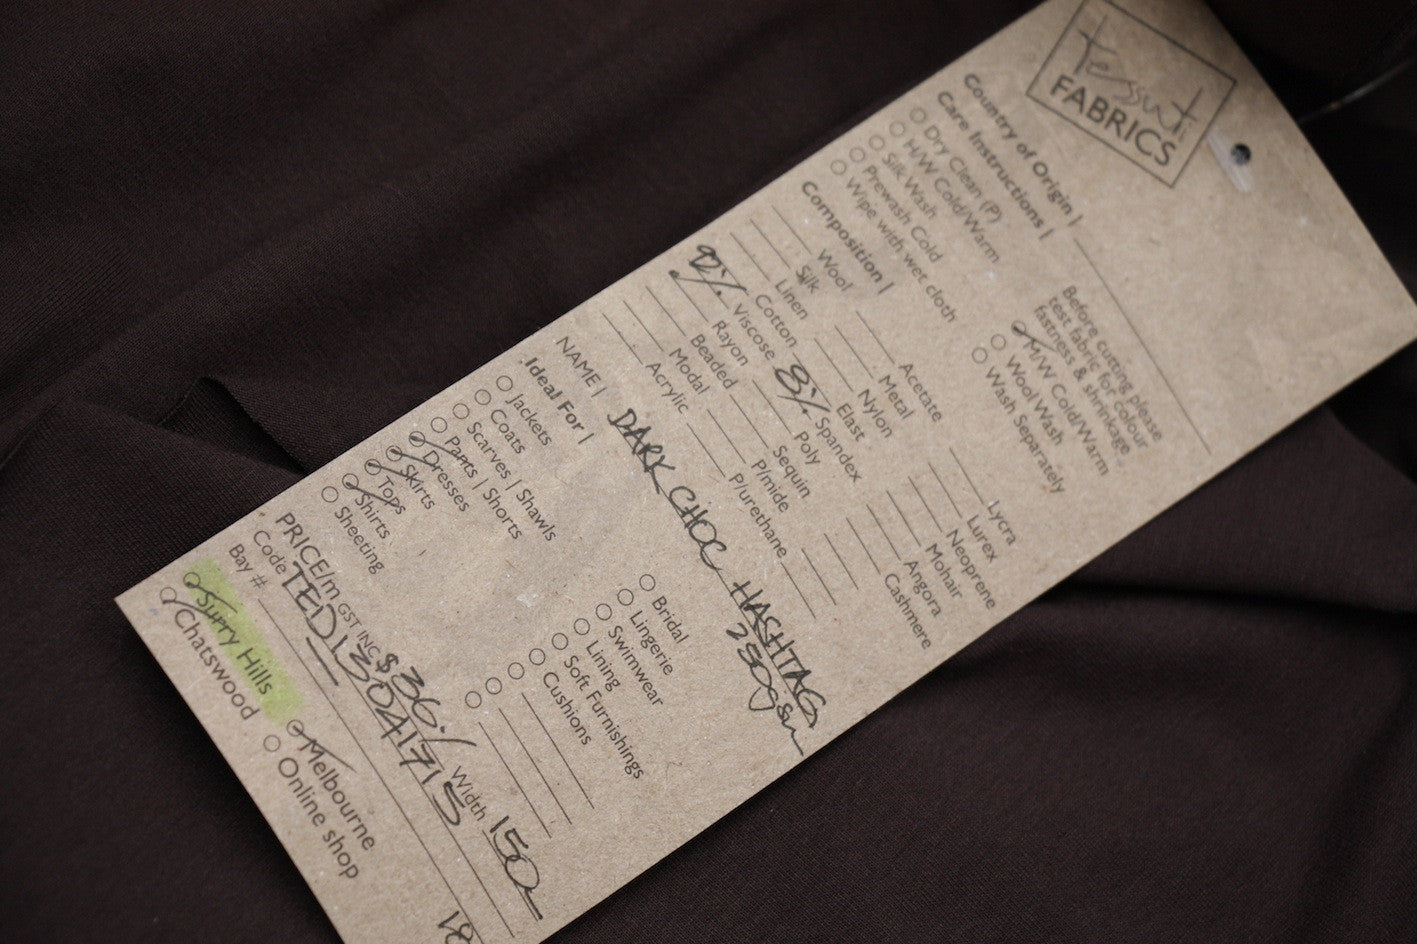 tessuti
FABRICS
Country of Origin |
Care Instructions |
Dry Clean (P)
H/W Cold/Warm
Silk Wash
Prewash Cold
Wipe with wet cloth
Before cutting please
test fabric for colour
fastness & shrinkage..
M/W Cold/Warm
Wool Wash
Wash Separately
Composition |
Wool
Silk
Linen
Cotton
92% Viscose
Rayon
Beaded
Modal
Acrylic
Acetate
Metal
Nylon
Elast
8% Spandex
Poly
Sequin
P/mide
P/urethane
Lycra
Lurex
Neoprene
Mohair
Angora
Cashmere
NAME | DARK CHOC HASHTAG
250gsm
Ideal For |
Jackets
Coats
Scarves | Shawls
Pants | Shorts
Dresses
Skirts
Tops
Shirts
Sheeting
Bridal
Lingerie
Swimwear
Lining
Soft Furnishings
Cushions
PRICE/m GST INC $36 Width 150
Code TED1304171S
Bay #
Surry Hills
Chatswood
Melbourne
Online shop